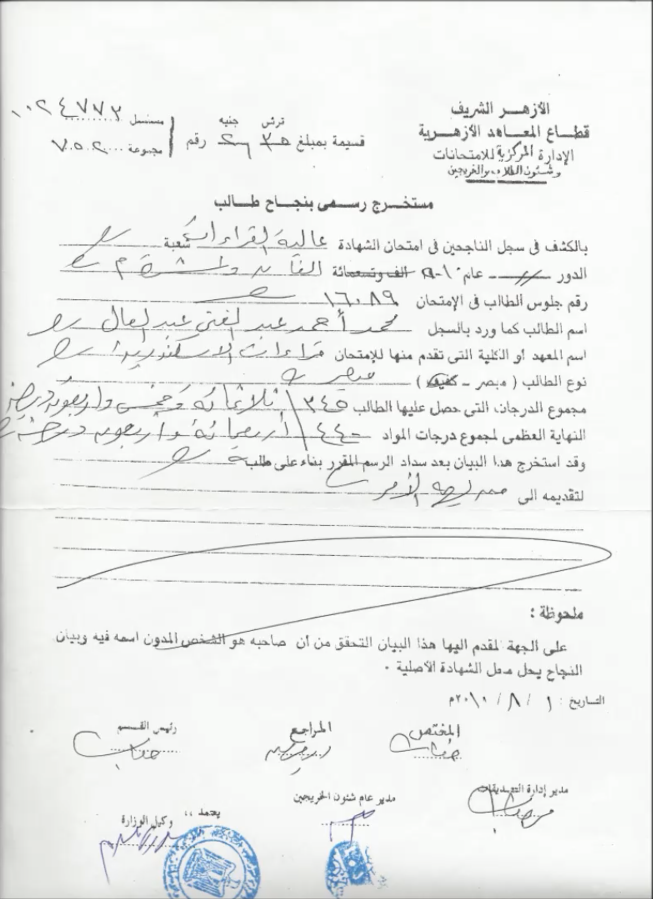 الأزهر الشريف
قطاع المعاهد الأزهرية
الإدارة المركزية للامتحانات
وشئون الطلاب والخريجين
قرش جنيه
قسيمة بمبلغ ٣٥ ٢٦ رقم
مسلسل ١٠٠٢٤٧٧٣
مجموعة ٧٠٥٠٢
مستخرج رسمى بنجاح طالب
بالكشف فى سجل الناجحين فى امتحان الشهادة عالية القراءات شعبة
الدور عام ألف وتسعمائة
رقم جلوس الطالب فى الإمتحان ١٦٠٨٩
اسم الطالب كما ورد بالسجل محمد أحمد عبد الغنى عبد العال
اسم المعهد أو الكلية التى تقدم منها للإمتحان قراءات الاسكندرية
نوع الطالب ( مبصر - كفيف ) مبصر
مجموع الدرجات التى حصل عليها الطالب ٣٤٥ ثلاثمائة وخمس وأربعون درجة
النهاية العظمى لمجموع درجات المواد ٤٤٠ أربعمائة وأربعون درجة
وقد استخرج هذا البيان بعد سداد الرسم المقرر بناء على طلبه
لتقديمه الى من يهمه الأمر
ملحوظة :
على الجهة المقدم اليها هذا البيان التحقق من ان صاحبه هو الشخص المدون اسمه فيه وبيان
النجاح يحل محل الشهادة الأصلية .
التاريخ : ١ / ٨ / ٢٠١٠م
المختص
المراجع
رئيس القسم
مدير إدارة التصديقات
مدير عام شئون الخريجين
يعتمد ،،
وكيل الوزارة